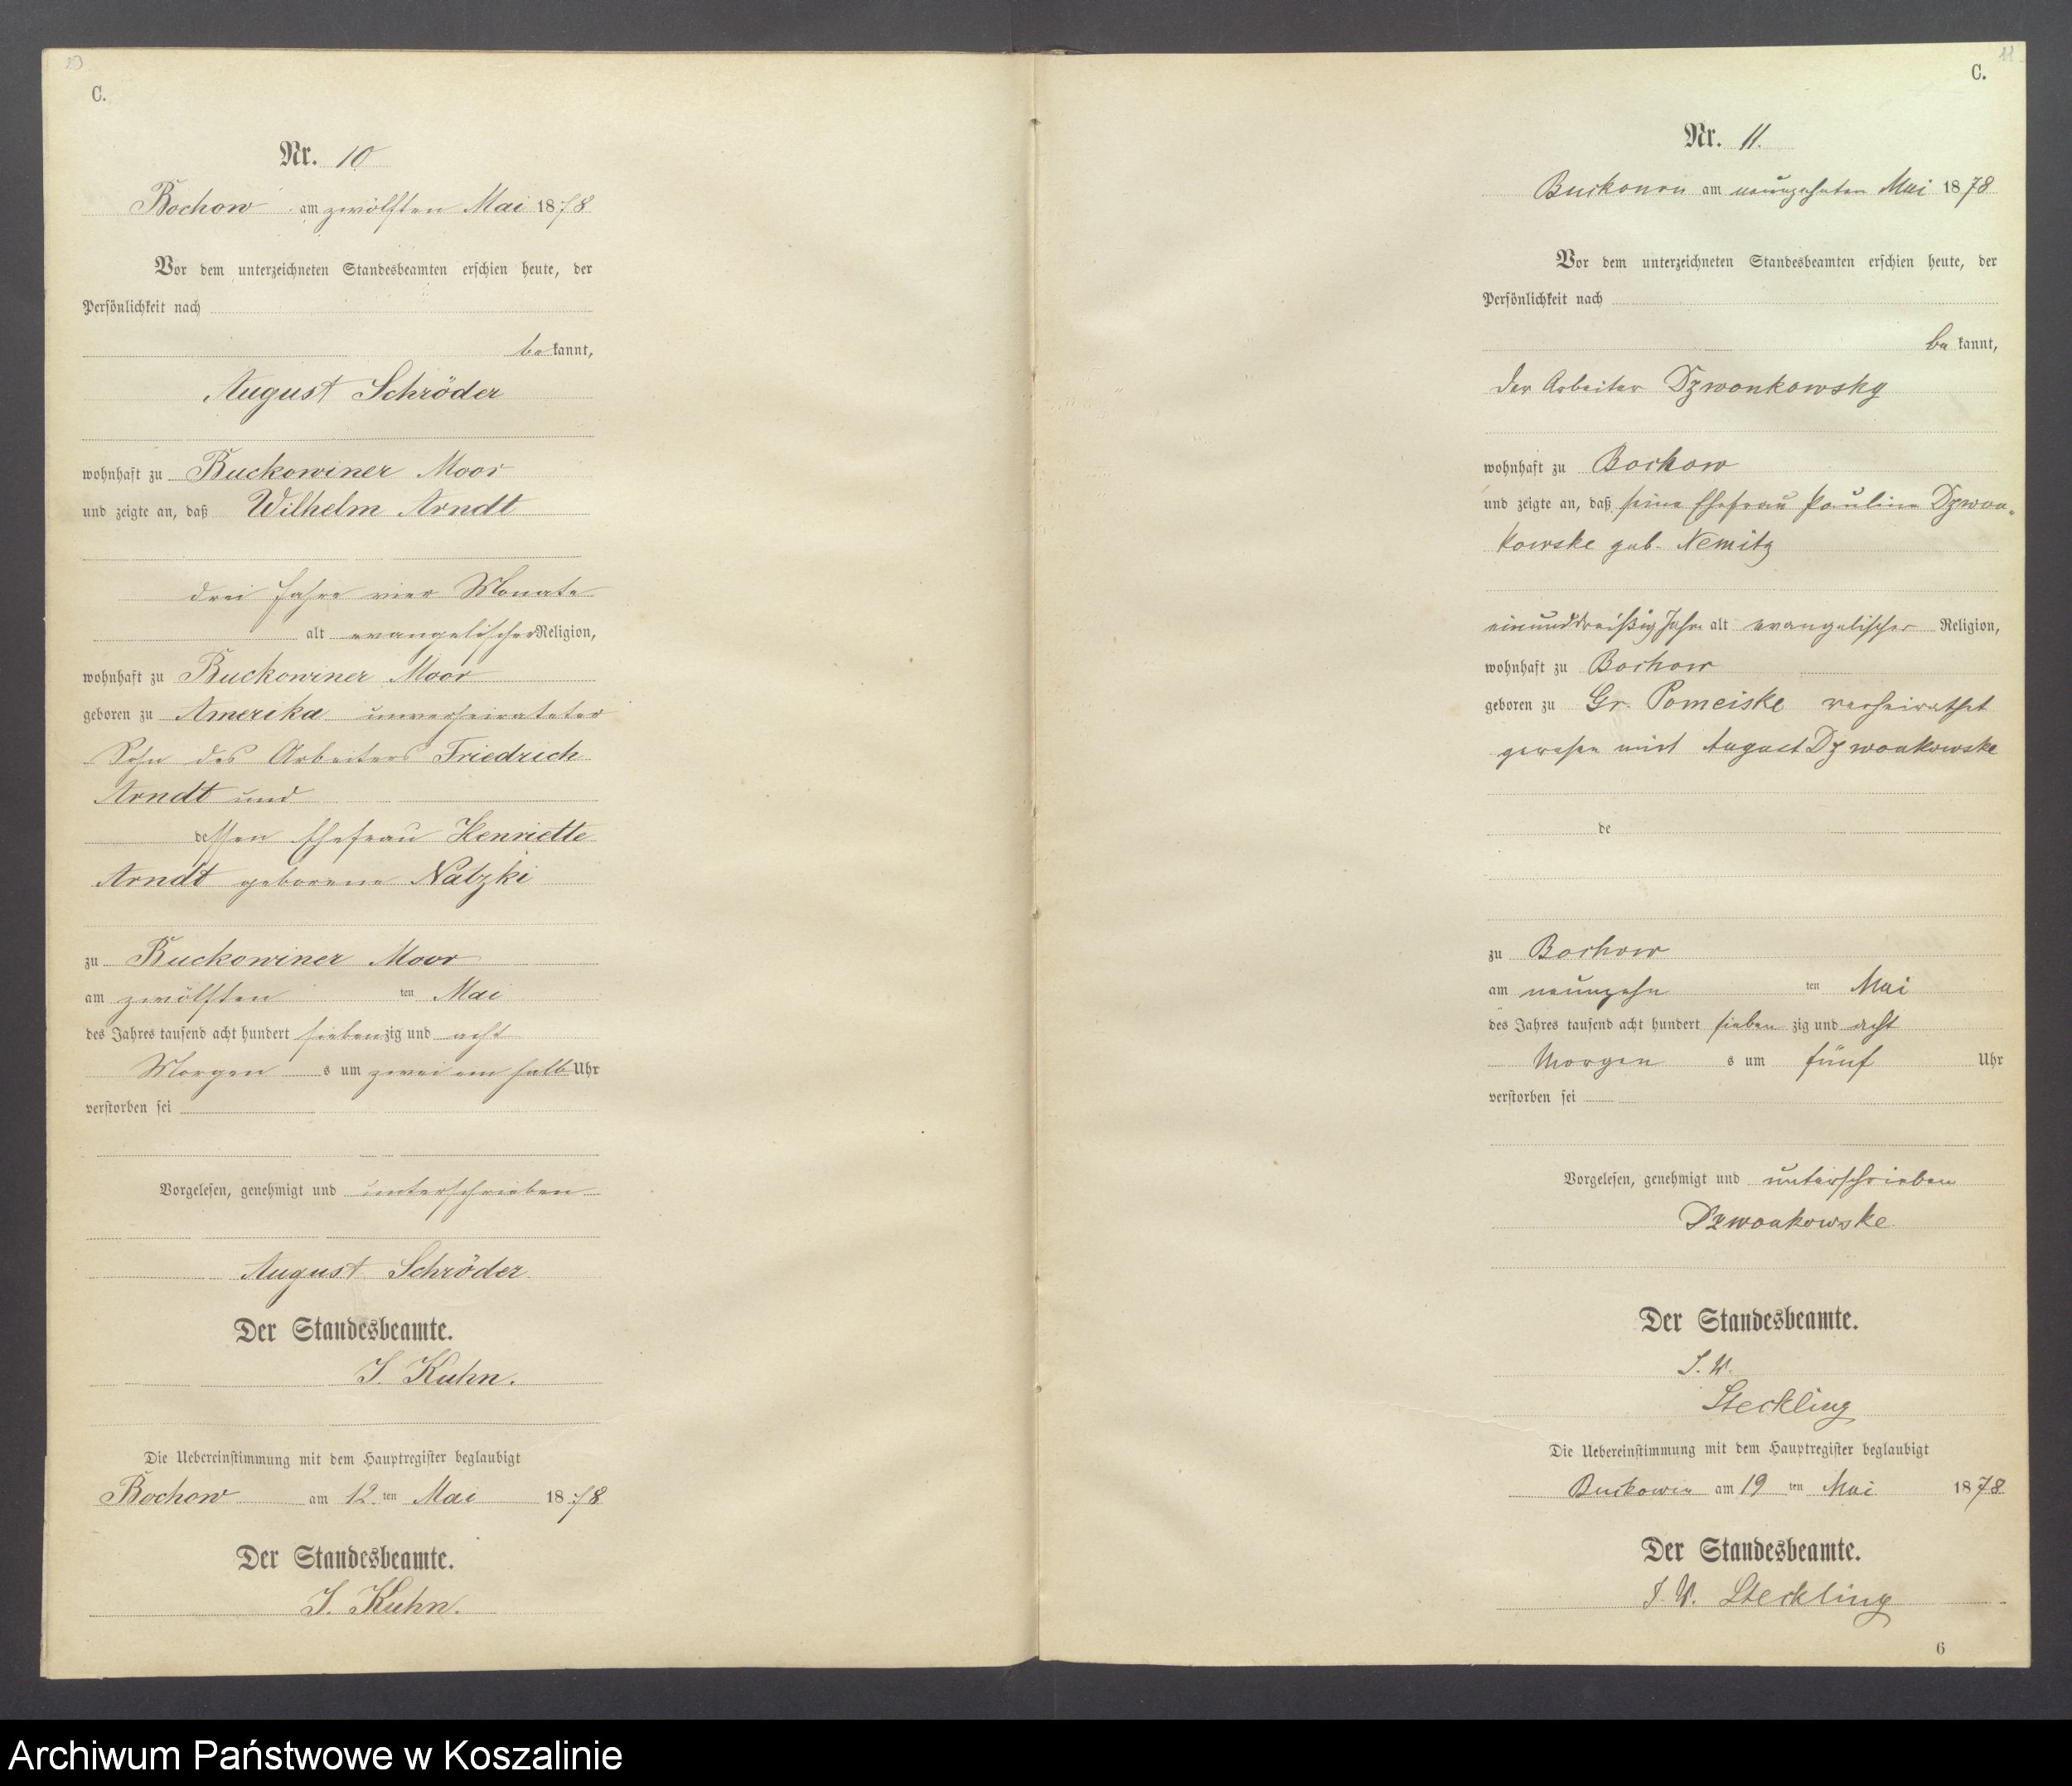 C.
Nr. 10
Bochow am zwölften Mai 1878
Vor dem unterzeichneten Standesbeamten erschien heute, der
Persönlichkeit nach
bekannt,
August Schröder
wohnhaft zu Buckowiner Moor
und zeigte an, daß Wilhelm Arndt
drei Jahre vier Monate
alt evangelischer Religion,
wohnhaft zu Buckowiner Moor
geboren zu Amerika unverheirateter
Sohn des Arbeiters Friedrich
Arndt und
dessen Ehefrau Henriette
Arndt geborene Natzki
zu Buckowiner Moor
am zwölften ten Mai
des Jahres tausend acht hundert siebenzig und acht
Morgens um zwei ein halb Uhr
verstorben sei
Vorgelesen, genehmigt und unterschrieben
August Schröder
Der Standesbeamte.
J. Kuhn.
Die Uebereinstimmung mit dem Hauptregister beglaubigt
Bochow am 12ten Mai 1878
Der Standesbeamte.
J. Kuhn.
11
C.
Nr. 11.
am neunzehnten Mai 1878
Vor dem unterzeichneten Standesbeamten erschien heute, der
Persönlichkeit nach
be kannt,
der Arbeiter Dzwonkowsky
wohnhaft zu Bochow
und zeigte an, daß seine Ehefrau Pauline Dzwon-
kowske geb. Nemitz
einunddreißig Jahre alt evangelischer Religion,
wohnhaft zu Bochow
geboren zu Gr. Pomeiske verheirathet
gewesen mit August Dzwonkowske
de
zu Bochow
am neunzehn ten Mai
des Jahres tausend acht hundert sieben zig und acht
Morgen s um fünf Uhr
verstorben sei
Vorgelesen, genehmigt und unterschrieben
Dzwonkowske
Der Standesbeamte.
J. V.
Steckling
Die Uebereinstimmung mit dem Hauptregister beglaubigt
Buckowin am 19 ten Mai 1878
Der Standesbeamte.
J. V. Steckling
6
Archiwum Państwowe w Koszalinie